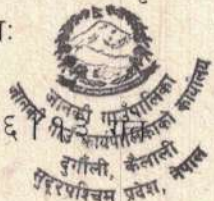 जानकी गाउँपालिका
जानकी गाउँ कार्यपालिकाको कार्यालय
६।१३
दुर्गौली, कैलाली
सुदूरपश्चिम प्रदेश, नेपाल